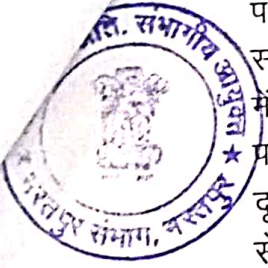 अति. संभागीय आयुक्त
★ भरतपुर संभाग, भरतपुर ★
प
स
में
प
दू
से